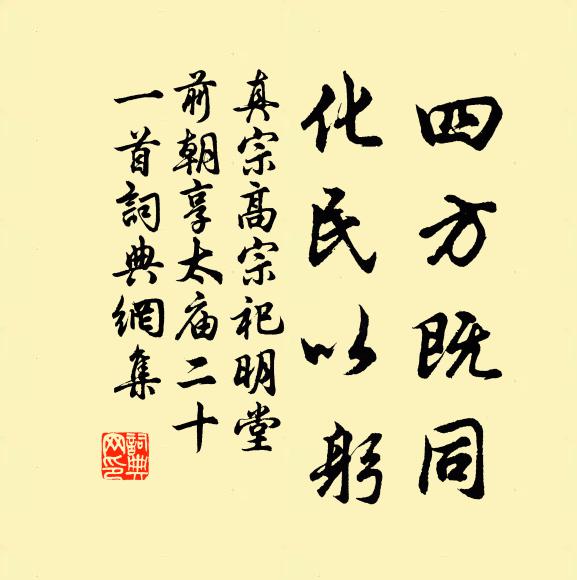 四方既同
化民以躬
真宗高宗祀明堂
前朝享太庙二十
一首詞典網集
詞典網印